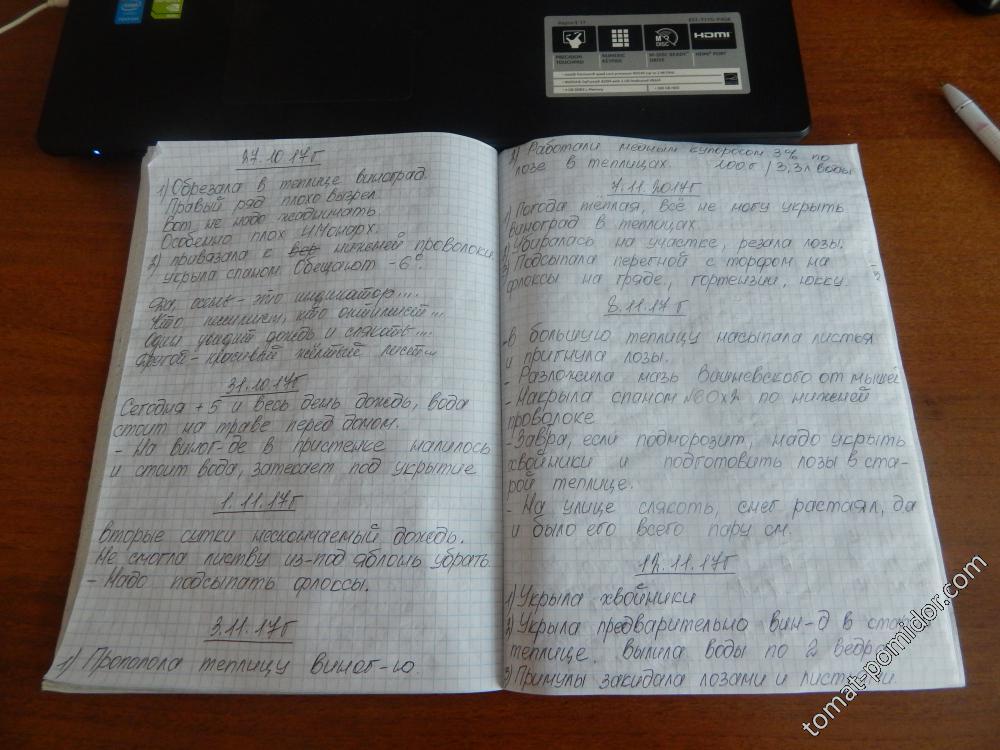 27.10.17г
1) Обрезала в теплице виноград.
Правый ряд плохо вызрел.
Вот не надо жадничать.
Особенно плох и Монарх.
2) привязала к нижней проволоки
укрыла спаном. Обещают -6°.
Да, осень - это индикатор...
Кто пессимист, кто оптимист...
Один увидит дождь и слякоть...
Другой - красивый жёлтый лист...
31.10.17г
Сегодня +5 и весь день дождь, вода
стоит на траве перед домом.
- На виног-де в пристенке налилось
и стоит вода, затекает под укрытие
1.11.17г
Вторые сутки нескончаемый дождь.
Не смогла листву из-под яблонь убрать.
- Надо подсыпать флоксы.
3.11.17г
1) Прополола теплицу виног-ю.
2) Работали медным купоросом 3% по
лозе в теплицах. 100г / 3,3л воды
7.11.2017г
1) Погода тёплая, всё не могу укрыть
виноград в теплицах.
2) Убиралась на участке, резала лозы.
3) Подсыпала перегной с торфом на
флоксы на гряде, гортензии, юкку.
8.11.17г
- В большую теплицу насыпала листья
и пригнула лозы.
- Разложила мазь Вишневского от мышей
- Накрыла спаном №60х2 по нижней
проволоке
- Завра, если подморозит, надо укрыть
хвойники и подготовить лозы в ста-
рой теплице.
- На улице слякоть, снег растаял, да
и было его всего пару см.
12.11.17г
1) Укрыла хвойники
2) Укрыла предварительно вин-д в
теплице. Вылила воды по 2 ведра
3) Примулы закидала лозами и листьями.
HDMI
PRECISION TOUCHPAD
NUMERIC KEYPAD
M-DISC READY DRIVE
HDMI PORT
tomat-pomidor.com